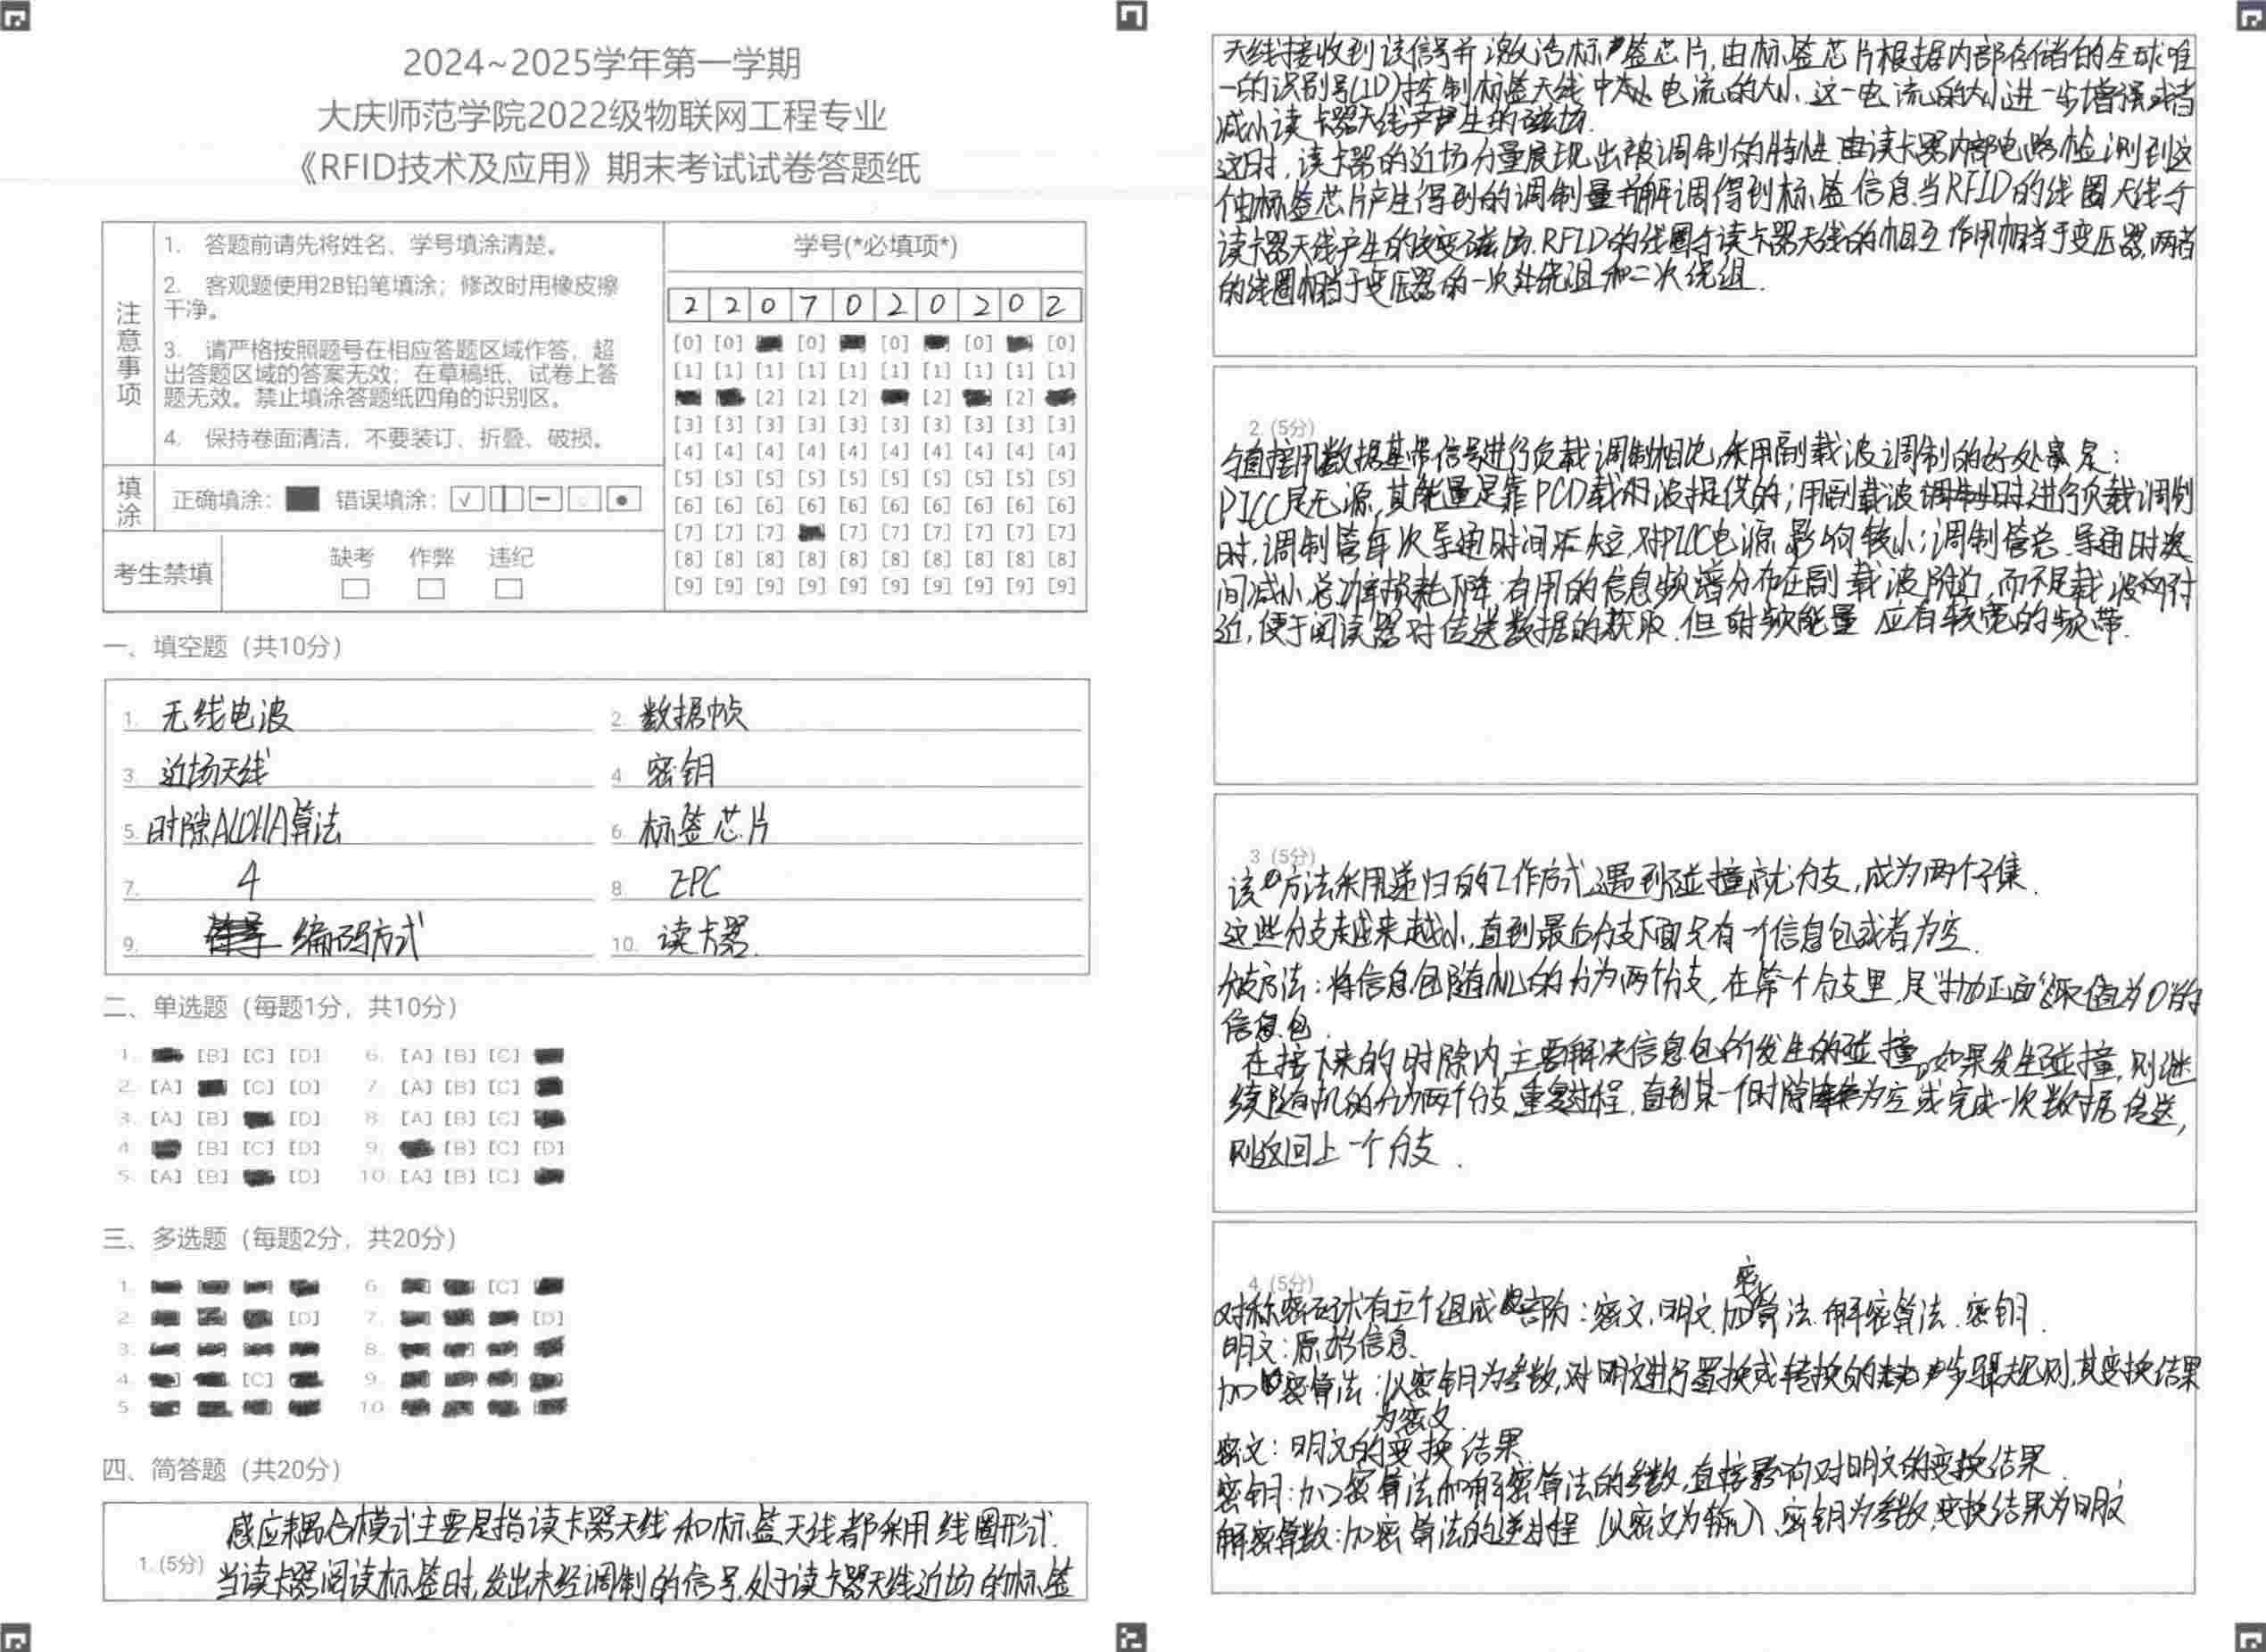 2024~2025学年第一学期
大庆师范学院2022级物联网工程专业
《RFID技术及应用》期末考试试卷答题纸
注意事项
1. 答题前请先将姓名、学号填涂清楚。
2. 客观题使用2B铅笔填涂；修改时用橡皮擦
干净。
3. 请严格按照题号在相应答题区域作答，超
出答题区域的答案无效；在草稿纸、试卷上答
题无效。禁止填涂答题纸四角的识别区。
4. 保持卷面清洁，不要装订、折叠、破损。
填涂 正确填涂： 错误填涂：
考生禁填 缺考 作弊 违纪
学号(*必填项*)
2 2 0 7 0 2 0 2 0 2
[0] [0] [0] [0] [0]
[1] [1] [1] [1] [1] [1] [1] [1] [1] [1]
[2] [2] [2] [2] [2]
[3] [3] [3] [3] [3] [3] [3] [3] [3] [3]
[4] [4] [4] [4] [4] [4] [4] [4] [4] [4]
[5] [5] [5] [5] [5] [5] [5] [5] [5] [5]
[6] [6] [6] [6] [6] [6] [6] [6] [6] [6]
[7] [7] [7] [7] [7] [7] [7] [7] [7]
[8] [8] [8] [8] [8] [8] [8] [8] [8] [8]
[9] [9] [9] [9] [9] [9] [9] [9] [9] [9]
一、填空题（共10分）
1. 无线电波 2. 数据帧
3. 近场天线 4 密钥
5. 时隙ALOHA算法 6. 标签芯片
7. 4 8. EPC
9. 编码方式 10. 读卡器.
二、单选题（每题1分，共10分）
1. [B] [C] [D] 6. [A] [B] [C]
2. [A] [C] [D] 7. [A] [B] [C]
3. [A] [B] [D] 8 [A] [B] [C]
4. [B] [C] [D] 9. [B] [C] [D]
5. [A] [B] [D] 10. [A] [B] [C]
三、多选题（每题2分，共20分）
1. 6. [C]
2. [D] 7. [D]
3. 8.
4. [C] 9.
5 10.
四、简答题（共20分）
感应耦合模式主要是指读卡器天线和标签天线都采用线圈形式.
1. (5分) 当读卡器阅读标签时,发出未经调制的信号,处于读卡器天线近场的标签
天线接收到该信号并激活标签芯片,由标签芯片根据内部存储的全球唯
一的识别号(ID)控制标签天线中电流的大小.这一电流的大小进一步增强或者
减小读卡器天线产生的磁场.
这时,读卡器的近场分量展现出被调制的特性 由读卡器内部电路检测到这
个由标签芯片产生得到的调制量并解调得到标签信息.当RFID的线圈天线与
读卡器天线产生的交变磁场.RFID的线圈与读卡器天线的相互作用相当于变压器,两者
的线圈相当于变压器的一次绕组和二次绕组.
2. (5分)
与直接用数据基带信号进行负载调制相比,采用副载波调制的好处是:
PICC是无源,其能量是靠PCD载波提供的;用副载波进行负载调制
时,调制管每次导通时间短,对PICC电源影响较小;调制管总导通时
间减小,总功率损耗下降.有用的信息频谱分布在副载波附近,而不是载波附
近,便于阅读器对传送数据的获取.但射频能量 应有较宽的频带.
3 (5分)
该方法采用递归的工作方式,遇到碰撞就分支,成为两个子集.
这些分支越来越小,直到最后分支下面只有一个信息包或者为空.
分支方法:将信息包随机的分为两个分支,在第一个分支里,是“抛正面”(取值为0)的
信息包.
在接下来的时隙内,主要解决信息包所发生的碰撞。如果发生碰撞,则继
续随机的分为两个分支,重复过程,直到某一个时隙为空或完成一次数据传送,
则返回上一个分支.
4. (5分)
对称密码术有五个组成部分:密文,明文,加密算法.解密算法.密钥.
明文:原始信息.
加密算法:以密钥为参数,对明文进行置换或转换的步骤规则,其变换结果
为密文.
密文:明文的变换结果
密钥:加密算法和解密算法的参数,直接影响对明文的变换结果.
解密算数:加密算法的逆过程 以密文为输入,密钥为参数,变换结果为明文